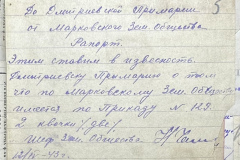 5
До Дмитриевской Примарии
от Марковского Зем. Общества
Рапорт.
Этим ставим в известность
Дмитриевску Примарию о том
что по Марковскому Зем. Обществу
имеется по Приказу № 129.
2 квочки /две/
Шеф Зем. Общества